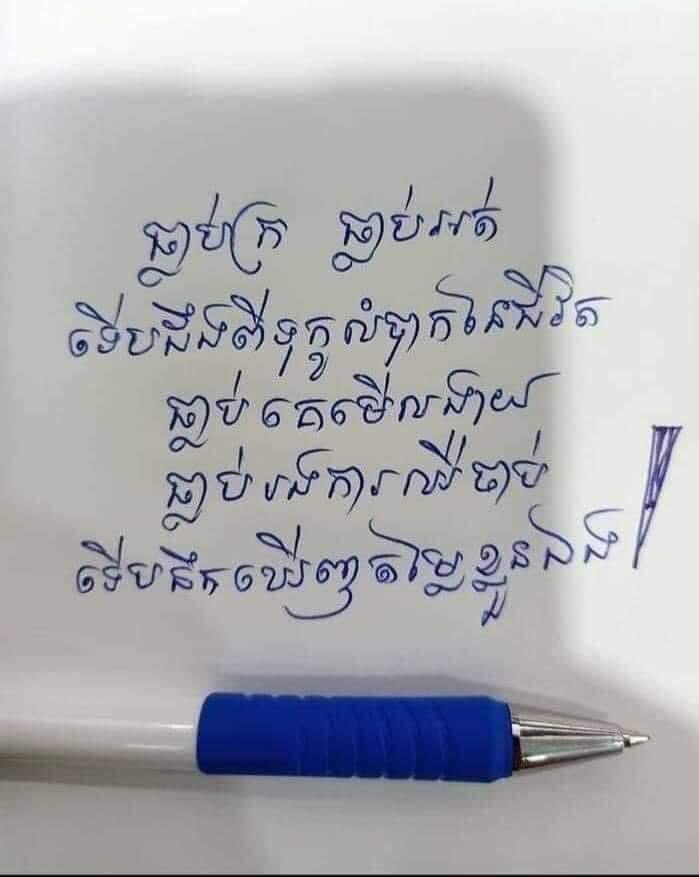 ធ្លាប់ក្រ ធ្លាប់អត់
ទើបដឹងពីទុក្ខលំបាកនៃជីវិត
ធ្លាប់គេមើលងាយ
ធ្លាប់រងការឈឺចាប់
ទើបនឹកឃើញតម្លៃខ្លួនឯង!